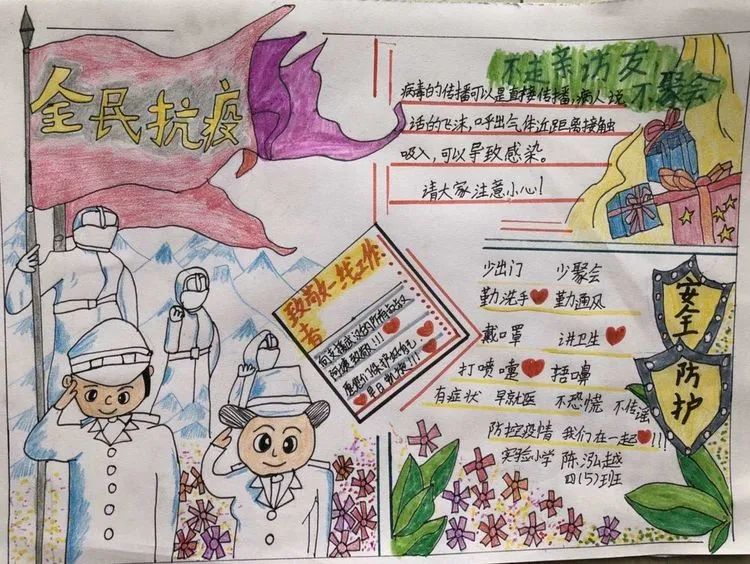 全民抗疫
不走亲访友
不聚会
病毒的传播可以是直接传播,病人说
话的飞沫,呼出气体近距离接触
吸入,可以导致感染。
请大家注意小心!
致敬一线工作
者
向支援武汉的所有战役
们保护好自己
平日凯旋!!!
少出门 少聚会
勤洗手 勤通风
戴口罩 讲卫生
打喷嚏 捂嘴
有症状 早就医 不恐慌 不传谣
防控疫情 我们在一起!!!
实验小学 陈泓越
四(5)班
安全
防护